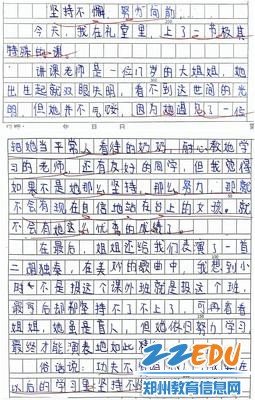 坚持不懈，努力向前
今天，我在礼堂里，上了一节极其
特殊的一课。
讲课老师是一位17岁的大姐姐，她
出生起就双眼失明，看不到这世间的光
明，但她并不气馁，因为她遇见了一位
把她当平常人看待的奶奶，耐心教她学
习的老师，还有友好的同学，但我觉得
如果不是她那么坚持，那么努力，那就
不会有现在自信地站在台上的女孩。就
不会有她这么优秀的成绩！
在最后，姐姐还给我们表演了一首
二胡独奏，在美妙的歌曲中，我想到小
时不是报这个课外班就是报这个班，
最后却都坚持不了不上了，可再看看
姐姐，她虽是盲人，但她依旧努力学习
最终才能演奏地如此
俗话说：功夫不
以后的学习里坚持不
ZZEDU
郑州教育信息网